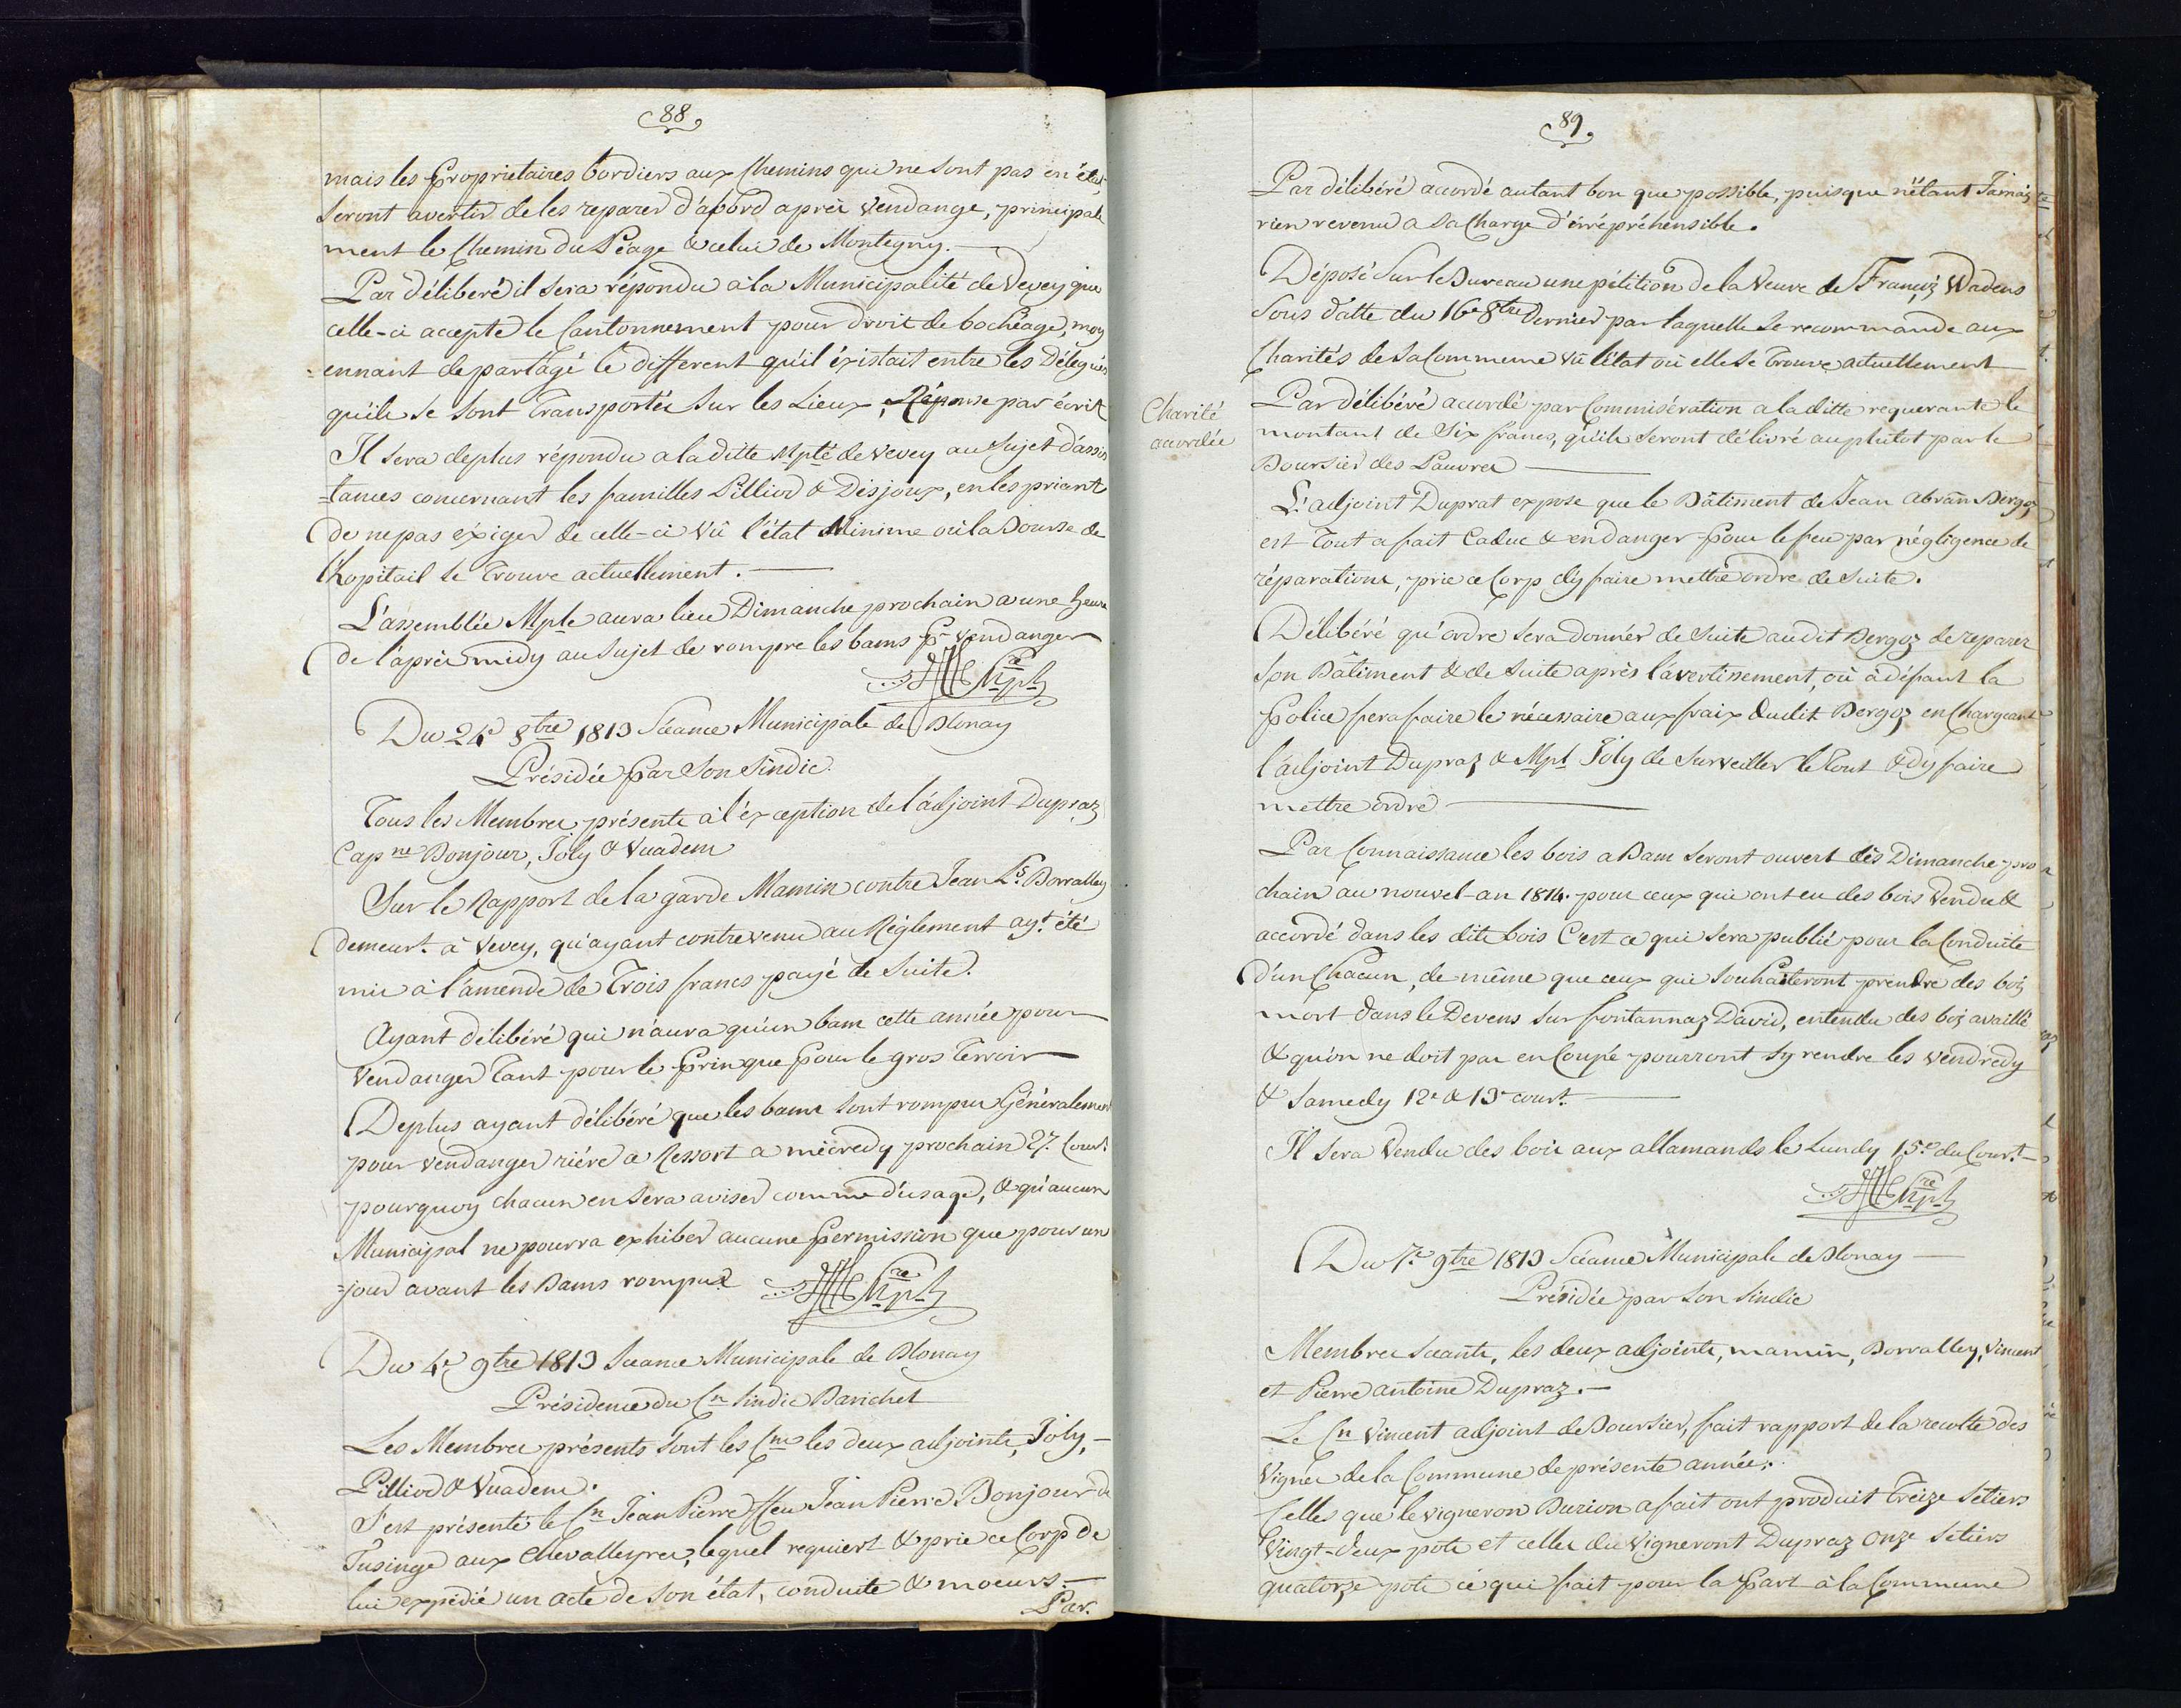 88
mais les Proprietaires bordiers aux Chemins qui ne sont pas en état
seront avertir de les reparer d'abord après Vendange, principale
ment le Chemin du Péage & celui de Montegny.
Par déliberé il sera répondu à la Municipalité de Vevey que
celle-ci accepte le Cantonnement pour droit de bochéage, moy
=ennant de partagé le different qu'il éxistait entre les Délegués
qu'ils se sont Transportés sur les Lieux, Réponse par écrit
Il sera deplus répondu a la ditte Mpté de Vevey au Sujet d'assis
=tances concernant les familles Pilliod & Disjoux, en les priant
de ne pas éxiger de celle-ci Vû l'état Minime où la Bourse de
l'hopitail se Trouve actuellement.
L'assemblée Mple aura lieu Dimanche prochain a une heure
de l'après midy au Sujet de rompre les bams pr Vendanger
Du 24e 8tre 1813 Séance Municipale de Blonay
Présidée par Son Sindic.
Tous les Membres présents à l'éxception de l'adjoint Dupraz
Capne Bonjour, Joly & Vuadens
Sur le Rapport de la garde Mamin contre Jean Ls Borralley
demeurt. à Vevey, qu'ayant contrevenu au Réglement ayt. été
mis à l'amende de Trois francs payé de Suite.
Ayant délibéré qui n'aura qu'un bam cette année pour
Vendanger Tant pour le Prin que pour le gros Terroir
Deplus ayant délibéré que les bams sont rompus Généralement
pour vendanger riére ce Ressort a mécredy prochain 27. Court.
pourquoy chacun en sera aviser comme d'usage, & qu'aucun
Municipal ne pourra exhiber aucune permission que pour un
=jour avant les Bams rompus
Du 4e 9tre 1813 Séance Municipale de Blonay
Présidence du Cn Sindic Barichet
Les Membres présents sont les Cns les deux adjoints, Joly,
Pilliod & Vuadens.
S'est présenté le Cn Jean Pierre ffeu Jean Pierre Bonjour de
Tusinge aux Chevalleyres, lequel requiert & prie ce Corp de
lui expédié un acte de Son état, conduite & moeurs.
Par.
89
Par délibéré accordé autant bon que possible, puisque n'étant Jamais
rien revenu a sa Charge d'irrépréhensible.
Déposé sur le Bureau une pétition de la Veuve de François Wadens
sous datte du 16e 8tre dernier par laquelle se recommande aux
Charités de sa Commune vû l'état où elle se trouve actuellement
Charité
accordée
Par délibéré accordé par Commisération a la ditte requerante le
montant de Six francs, qu'ils seront délivré au plutot par le
Boursier des Pauvres
L'adjoint Duprat expose que le Bâtiment de Jean Abram Bergoz
est Tout a fait Caduc & en danger pour le feu par négligence de
réparations, prie ce Corp d'y faire mettre ordre de Suite.
Délibéré qu'ordre sera donner de Suite au dit Bergoz de reparer
son Bâtiment & de Suite après l'avertissement, où à défaut la
Police fera faire le nécessaire aux fraix du dit Bergoz en Chargeant
l'adjoint Dupraz & Mpl Joly de surveiller le Tout & d'y faire
mettre ordre
Par Connaissance les bois a Bam seront ouvert dès Dimanche pro
chain au nouvel-an 1814. pour ceux qui ont eu des bois Vendu &
accordé dans les dits bois C'est ce qui sera publié pour la Conduite
d'un Chacun, de même que ceux qui souhaiteront prendre des bois
mort dans le Devens sur fontannaz David, entendu des boz availlé
& qu'on ne doit pas en Coupé pourront s'y rendre les Vendredy
& Samedy 12e & 13e court.
Il sera Vendu des bois aux allamands le Lundy 15e du Court.
Du 7e 9tre 1813 Séance Municipale de Blonay
Présidée par son Sindic
Membres séants, les deux adjoints, mamin, Borralley, Vincent
et Pierre antoine Dupraz.
Le Cn Vincent adjoint de Boursier, fait rapport de la recolte des
Vignes de la Commune de présente année.
Celles que le vigneron Burion a fait ont produit Treize Sétiers
Vingt-deux pots et celles du Vigneront Dupraz onze Sétiers
quatorze pots ce qui fait pour la part à la Commune